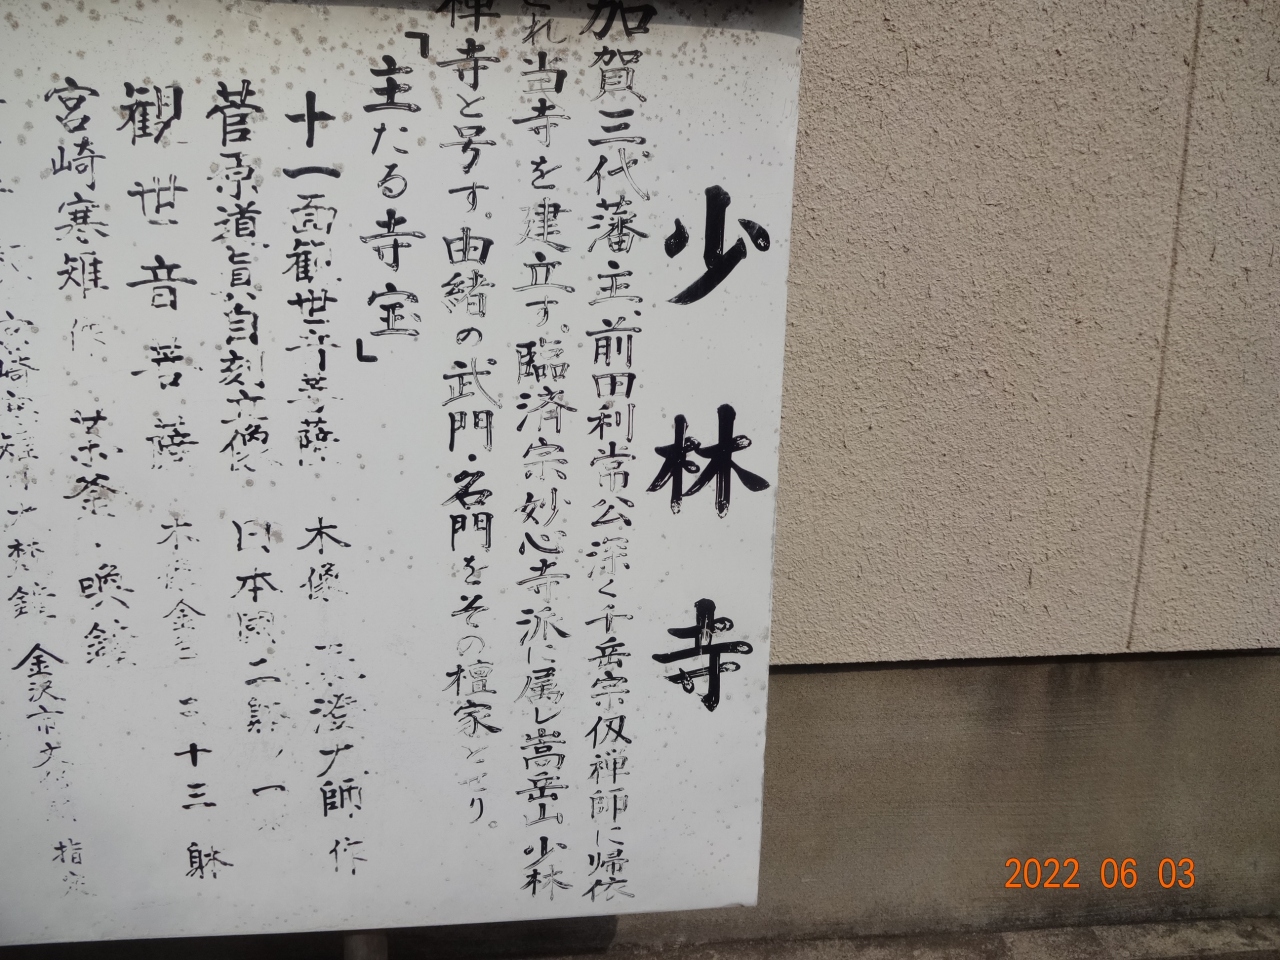 少林寺
加賀三代藩主、前田利常公深く千岳宗仭禅師に帰依
され当寺を建立す。臨済宗妙心寺派に属し嵩岳山少林
禅寺と号す。由緒の武門・名門をその檀家とせり。
「主たる寺宝」
十一面観世音菩薩 木像 澄大師作
菅原道眞自刻立像 日本國二 一
観世音菩薩 木像金 三十三躰
宮崎寒雉作 茶釜・喚鐘
宮崎寒雉 梵鐘 金沢市文 指定
2022 06 03